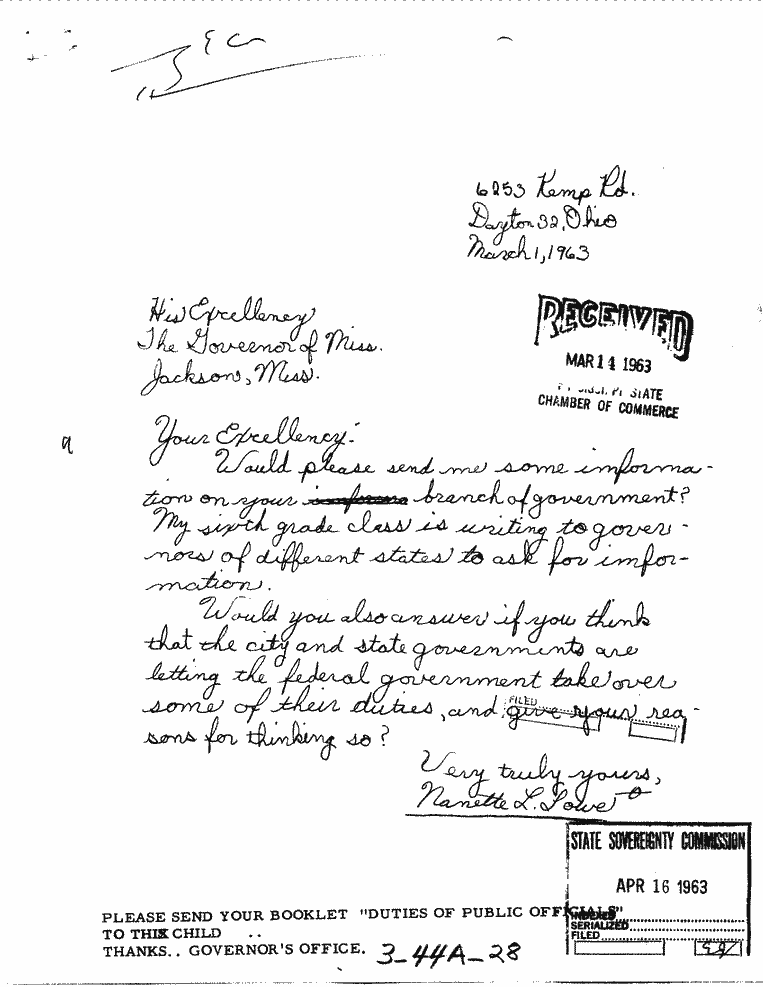 6253 Kemp Rd.
Dayton 32, Ohio
March 1, 1963
His Excellency
The Governor of Miss.
Jackson, Miss.
RECEIVED
MAR 14 1963
STATE
CHAMBER OF COMMERCE
Your Excellency:
Would please send me some informa-
tion on your informa branch of government?
My sixth grade class is writing to gover-
nors of different states to ask for infor-
mation.
Would you also answer if you think
that the city and state governments are
letting the federal government take over
some of their duties, and give your rea-
FILED
sons for thinking so?
Very truly yours,
Nanette L. Lowe
STATE SOVEREIGNTY COMMISSION
APR 16 1963
INDEXED
SERIALIZED
FILED
PLEASE SEND YOUR BOOKLET "DUTIES OF PUBLIC OFFICIALS"
TO THIS CHILD ..
THANKS.. GOVERNOR'S OFFICE. 3-44A-28